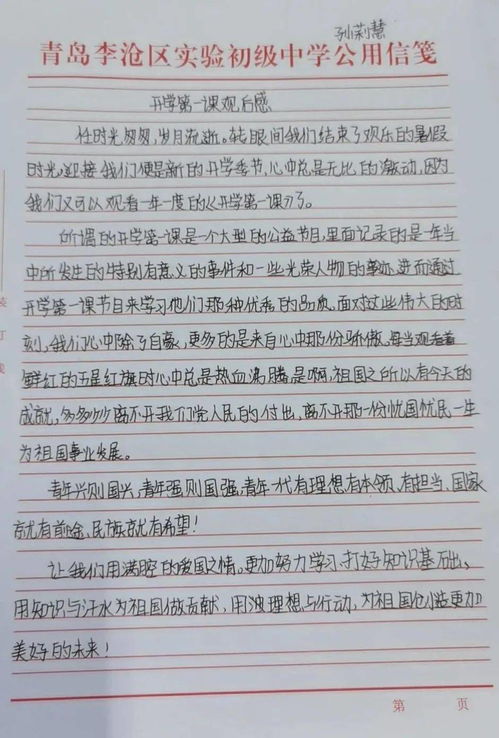 孙莉慧
青岛李沧区实验初级中学公用信笺
开学第一课观后感
任时光匆匆,岁月流逝。转眼间我们结束了欢乐的暑假
时光,迎接我们便是新的开学季节,心中总是无比的激动,因为
我们又可以观看一年一度的《开学第一课》了。
所谓的开学第一课是一个大型的公益节目,里面记录的是一年当
中所发生的特别有意义的事件和一些光荣人物的事迹,进而通过
开学第一课节目来学习他们那种优秀的品质。面对这些伟大的时
刻,我们心中除了自豪,更多的是来自心中那份骄傲,每当观看着
鲜红的五星红旗时心中总是热血沸腾,是啊,祖国之所以有今天的
成就,多多少少离不开我们党人民的付出,离不开那一份忧国忧民一生
为祖国事业发展。
青年兴则国兴,青年强则国强,青年一代有理想、有本领、有担当,国家
就有前途,民族就有希望!
让我们用满腔的爱国之情。更加努力学习、打好知识基础、
用知识与汗水为祖国做贡献,用理想与行动,为祖国创造更加
美好的未来!
装
订
线
第 页